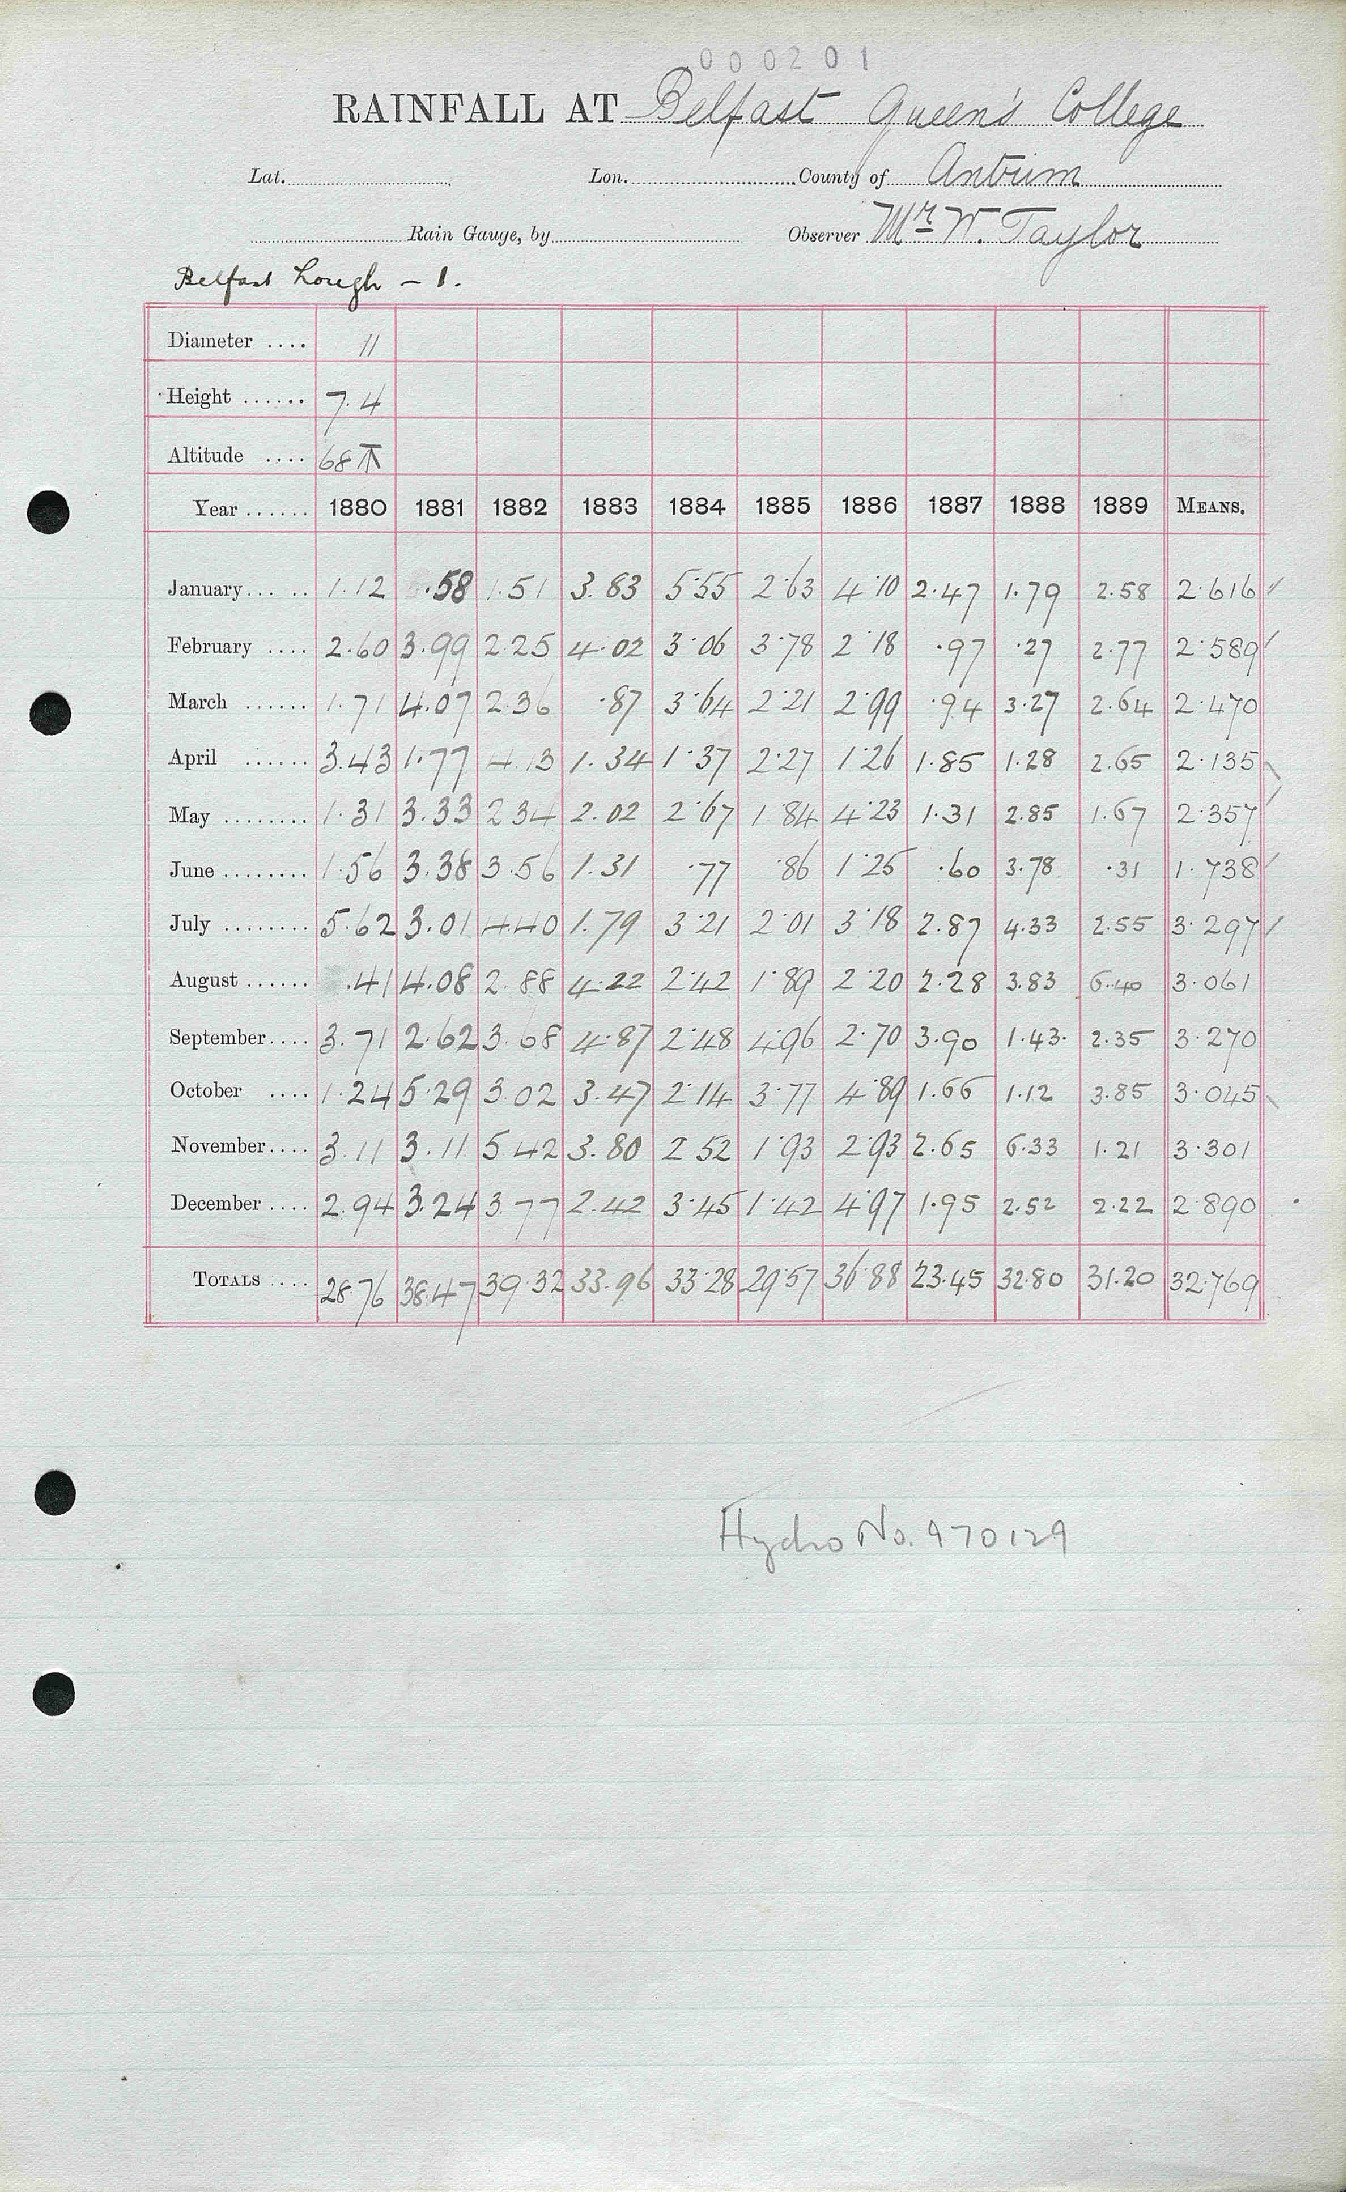 000201
RAINFALL AT Belfast Queen's College
Lat. Lon. County of Antrim
Rain Gauge, by Observer Mr W. Taylor
Belfast Lough – 1.
Diameter .... 11
Height ...... 7.4
Altitude .... 68
Year ...... 1880 1881 1882 1883 1884 1885 1886 1887 1888 1889 MEANS.
January ..... 1.12 .58 1.51 3.83 5.55 2.63 4.10 2.47 1.79 2.58 2.616
February .... 2.60 3.99 2.25 4.02 3.06 3.78 2.18 .97 .27 2.77 2.589
March ...... 1.71 4.07 2.36 .87 3.64 2.21 2.99 .94 3.27 2.64 2.470
April ...... 3.43 1.77 4.13 1.34 1.37 2.27 1.26 1.85 1.28 2.65 2.135
May ........ 1.31 3.33 2.34 2.02 2.67 1.84 4.23 1.31 2.85 1.67 2.357
June ........ 1.56 3.38 3.56 1.31 .77 .86 1.25 .60 3.78 .31 1.738
July ........ 5.62 3.01 4.40 1.79 3.21 2.01 3.18 2.87 4.33 2.55 3.297
August ...... .41 4.08 2.88 4.22 2.42 1.89 2.20 2.28 3.83 6.40 3.061
September .... 3.71 2.62 3.68 4.87 2.48 4.96 2.70 3.90 1.43 2.35 3.270
October .... 1.24 5.29 3.02 3.47 2.14 3.77 4.89 1.66 1.12 3.85 3.045
November .... 3.11 3.11 5.42 3.80 2.52 1.93 2.93 2.65 6.33 1.21 3.301
December .... 2.94 3.24 3.77 2.42 3.45 1.42 4.97 1.95 2.52 2.22 2.890
TOTALS .... 28.76 38.47 39.32 33.96 33.28 29.57 36.88 23.45 32.80 31.20 32.769
Hydro No. 970129